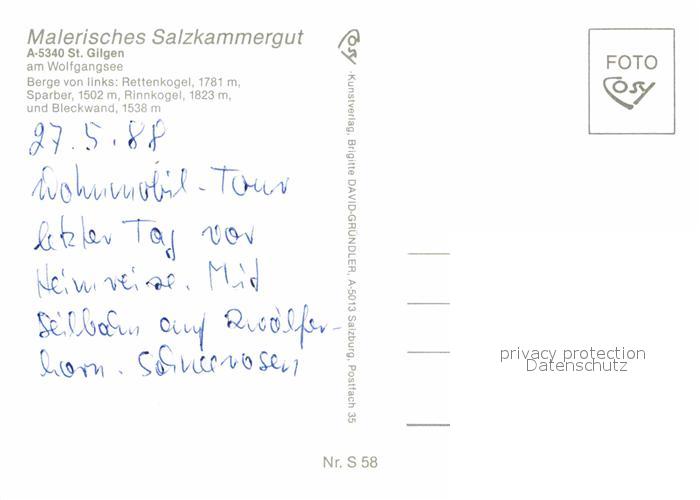 Malerisches Salzkammergut
A-5340 St. Gilgen
am Wolfgangsee
Berge von links: Rettenkogel, 1781 m,
Sparber, 1502 m, Rinnkogel, 1823 m,
und Bleckwand, 1538 m
27.5.88
Wohnmobil-Tour
letzter Tag vor
Heimreise. Mit
Seilbahn auf Zwölfer-
horn. Schneerosen
Cosy
-Kunstverlag, Brigitte DAVID-GRÜNDLER, A-5013 Salzburg, Postfach 35
FOTO
Cosy
privacy protection
Datenschutz
Nr. S 58